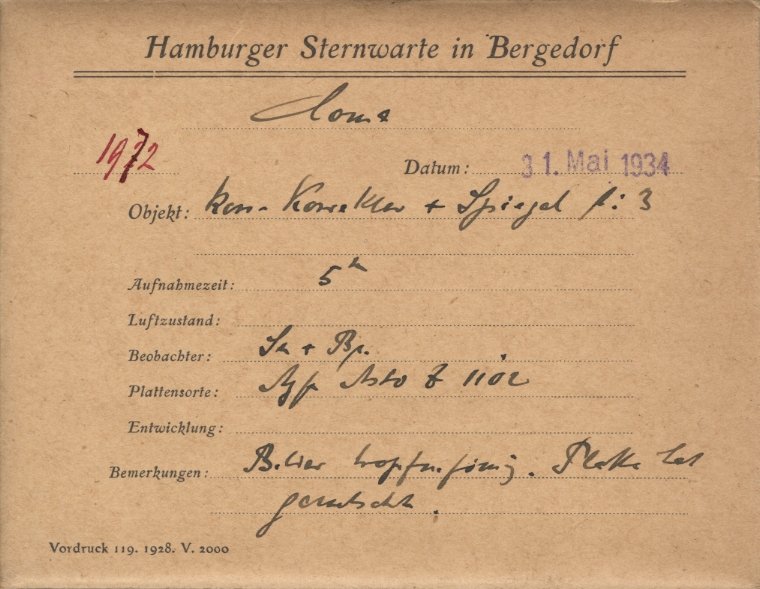 Hamburger Sternwarte in Bergedorf
Coma
1972
Datum: 31. Mai 1934
Objekt: + Spiegel f: 3
Aufnahmezeit: 5ᵐ
Luftzustand:
Beobachter: + Bp.
Plattensorte: Agfa Astro Z 1102
Entwicklung:
Bemerkungen: Bilder tropfenförmig. Platte hat
gerutscht.
Vordruck 119. 1928. V. 2000